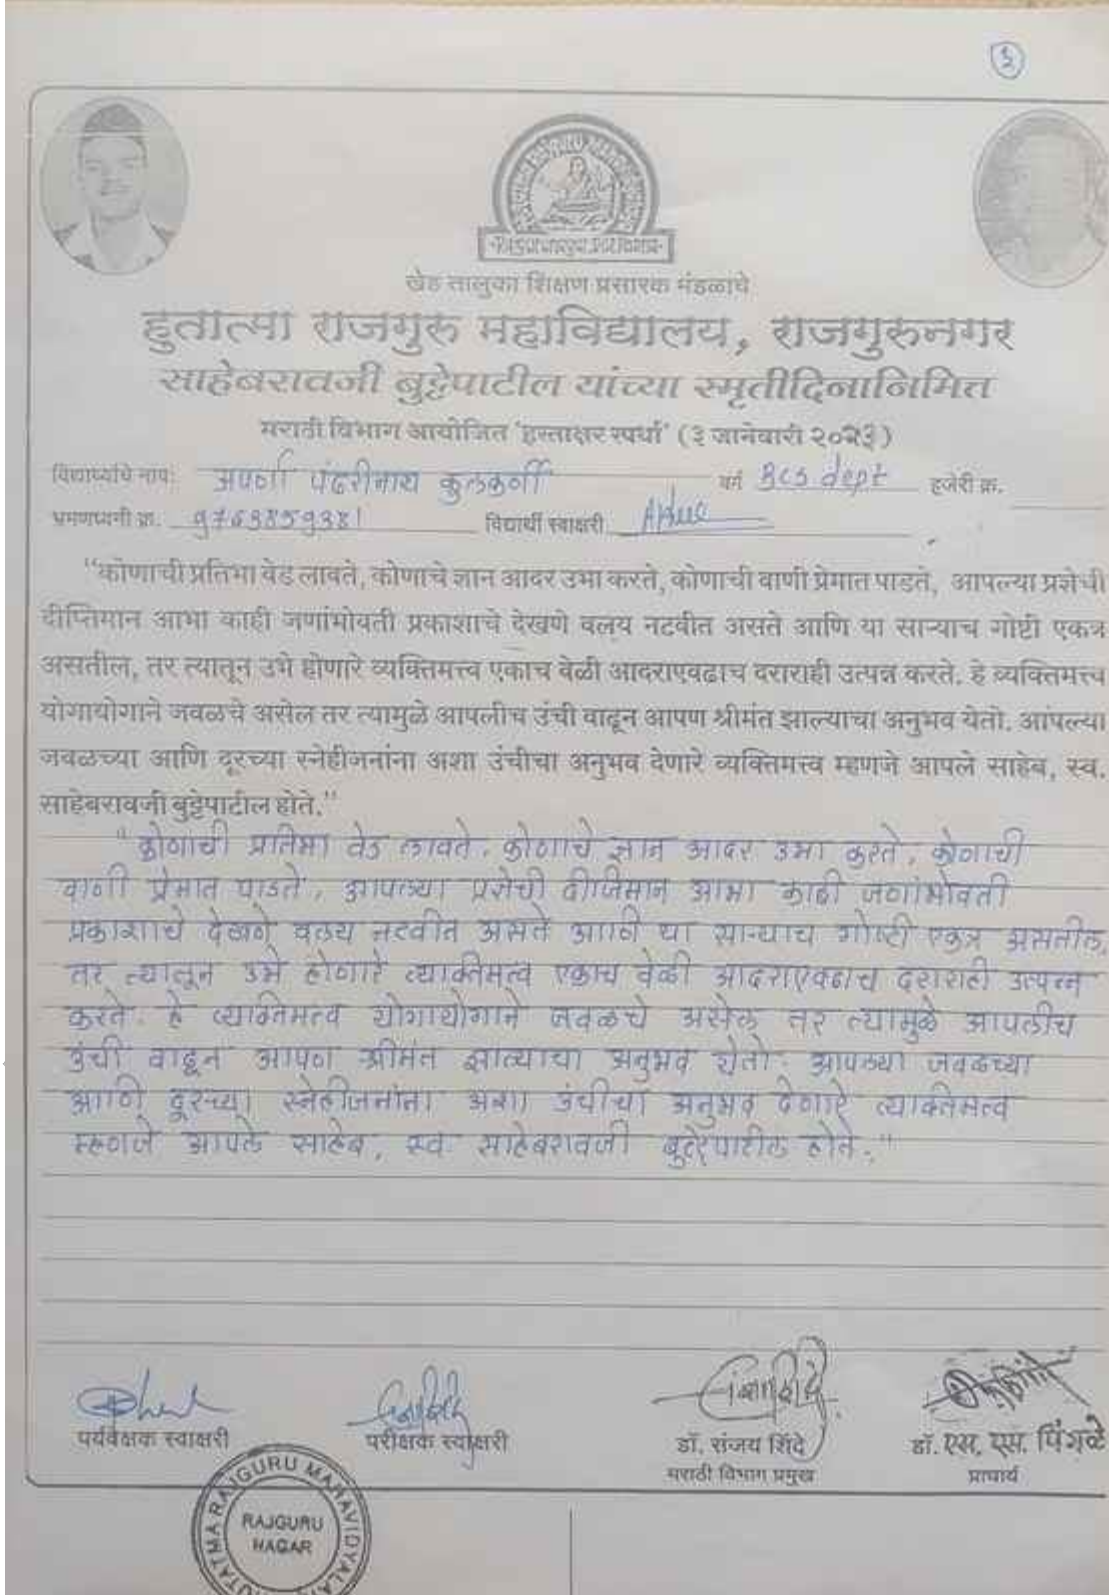 ३
खेड तालुका शिक्षण प्रसारक मंडळाचे
हुतात्मा राजगुरु महाविद्यालय, राजगुरुनगर
साहेबरावजी बुट्टेपाटील यांच्या स्मृतीदिनानिमित्त
मराठी विभाग आयोजित 'हस्ताक्षर स्पर्धा' (३ जानेवारी २०२३)
विद्यार्थ्याचे नाव: अपर्णा पंढरीनाथ कुलकर्णी वर्ग BCS dept हजेरी क्र.
भ्रमणध्वनी क्र. 9763859381 विद्यार्थी स्वाक्षरी
"कोणाची प्रतिभा वेड लावते, कोणाचे ज्ञान आदर उभा करते, कोणाची वाणी प्रेमात पाडते, आपल्या प्रज्ञेची
दीप्तिमान आभा काही जणांभोवती प्रकाशाचे देखणे वलय नटवीत असते आणि या साऱ्याच गोष्टी एकत्र
असतील, तर त्यातून उभे होणारे व्यक्तिमत्त्व एकाच वेळी आदराएवढाच दराराही उत्पन्न करते. हे व्यक्तिमत्त्व
योगायोगाने जवळचे असेल तर त्यामुळे आपलीच उंची वाढून आपण श्रीमंत झाल्याचा अनुभव येतो. आपल्या
जवळच्या आणि दूरच्या स्नेहीजनांना अशा उंचीचा अनुभव देणारे व्यक्तिमत्त्व म्हणजे आपले साहेब, स्व.
साहेबरावजी बुट्टेपाटील होते."
"कोणाची प्रतिभा वेड लावते. कोणाचे ज्ञान आदर उभा करते, कोणाची
वाणी प्रेमात पाडते, आपल्या प्रज्ञेची दीप्तिमान आभा काही जणांभोवती
प्रकाशाचे देखणे वलय नटवीत असते आणि या साऱ्याच गोष्टी एकत्र असतील,
तर त्यातून उभे होणारे व्यक्तिमत्व एकाच वेळी आदराएवढाच दराराही उत्पन्न
करते. हे व्यक्तिमत्व योगायोगाने जवळचे असेल तर त्यामुळे आपलीच
उंची वाढून आपण श्रीमंत झाल्याचा अनुभव येतो. आपल्या जवळच्या
आणि दूरच्या स्नेहीजनांना अशा उंचीचा अनुभव देणारे व्यक्तिमत्व
म्हणजे आपले साहेब, स्व. साहेबरावजी बुट्टेपाटील होते."
पर्यवेक्षक स्वाक्षरी परीक्षक स्वाक्षरी डॉ. संजय शिंदे डॉ. एस. एस. पिंगळे
मराठी विभाग प्रमुख प्राचार्य
HUTATMA RAJGURU MAHAVIDYALAYA
RAJGURU
NAGAR